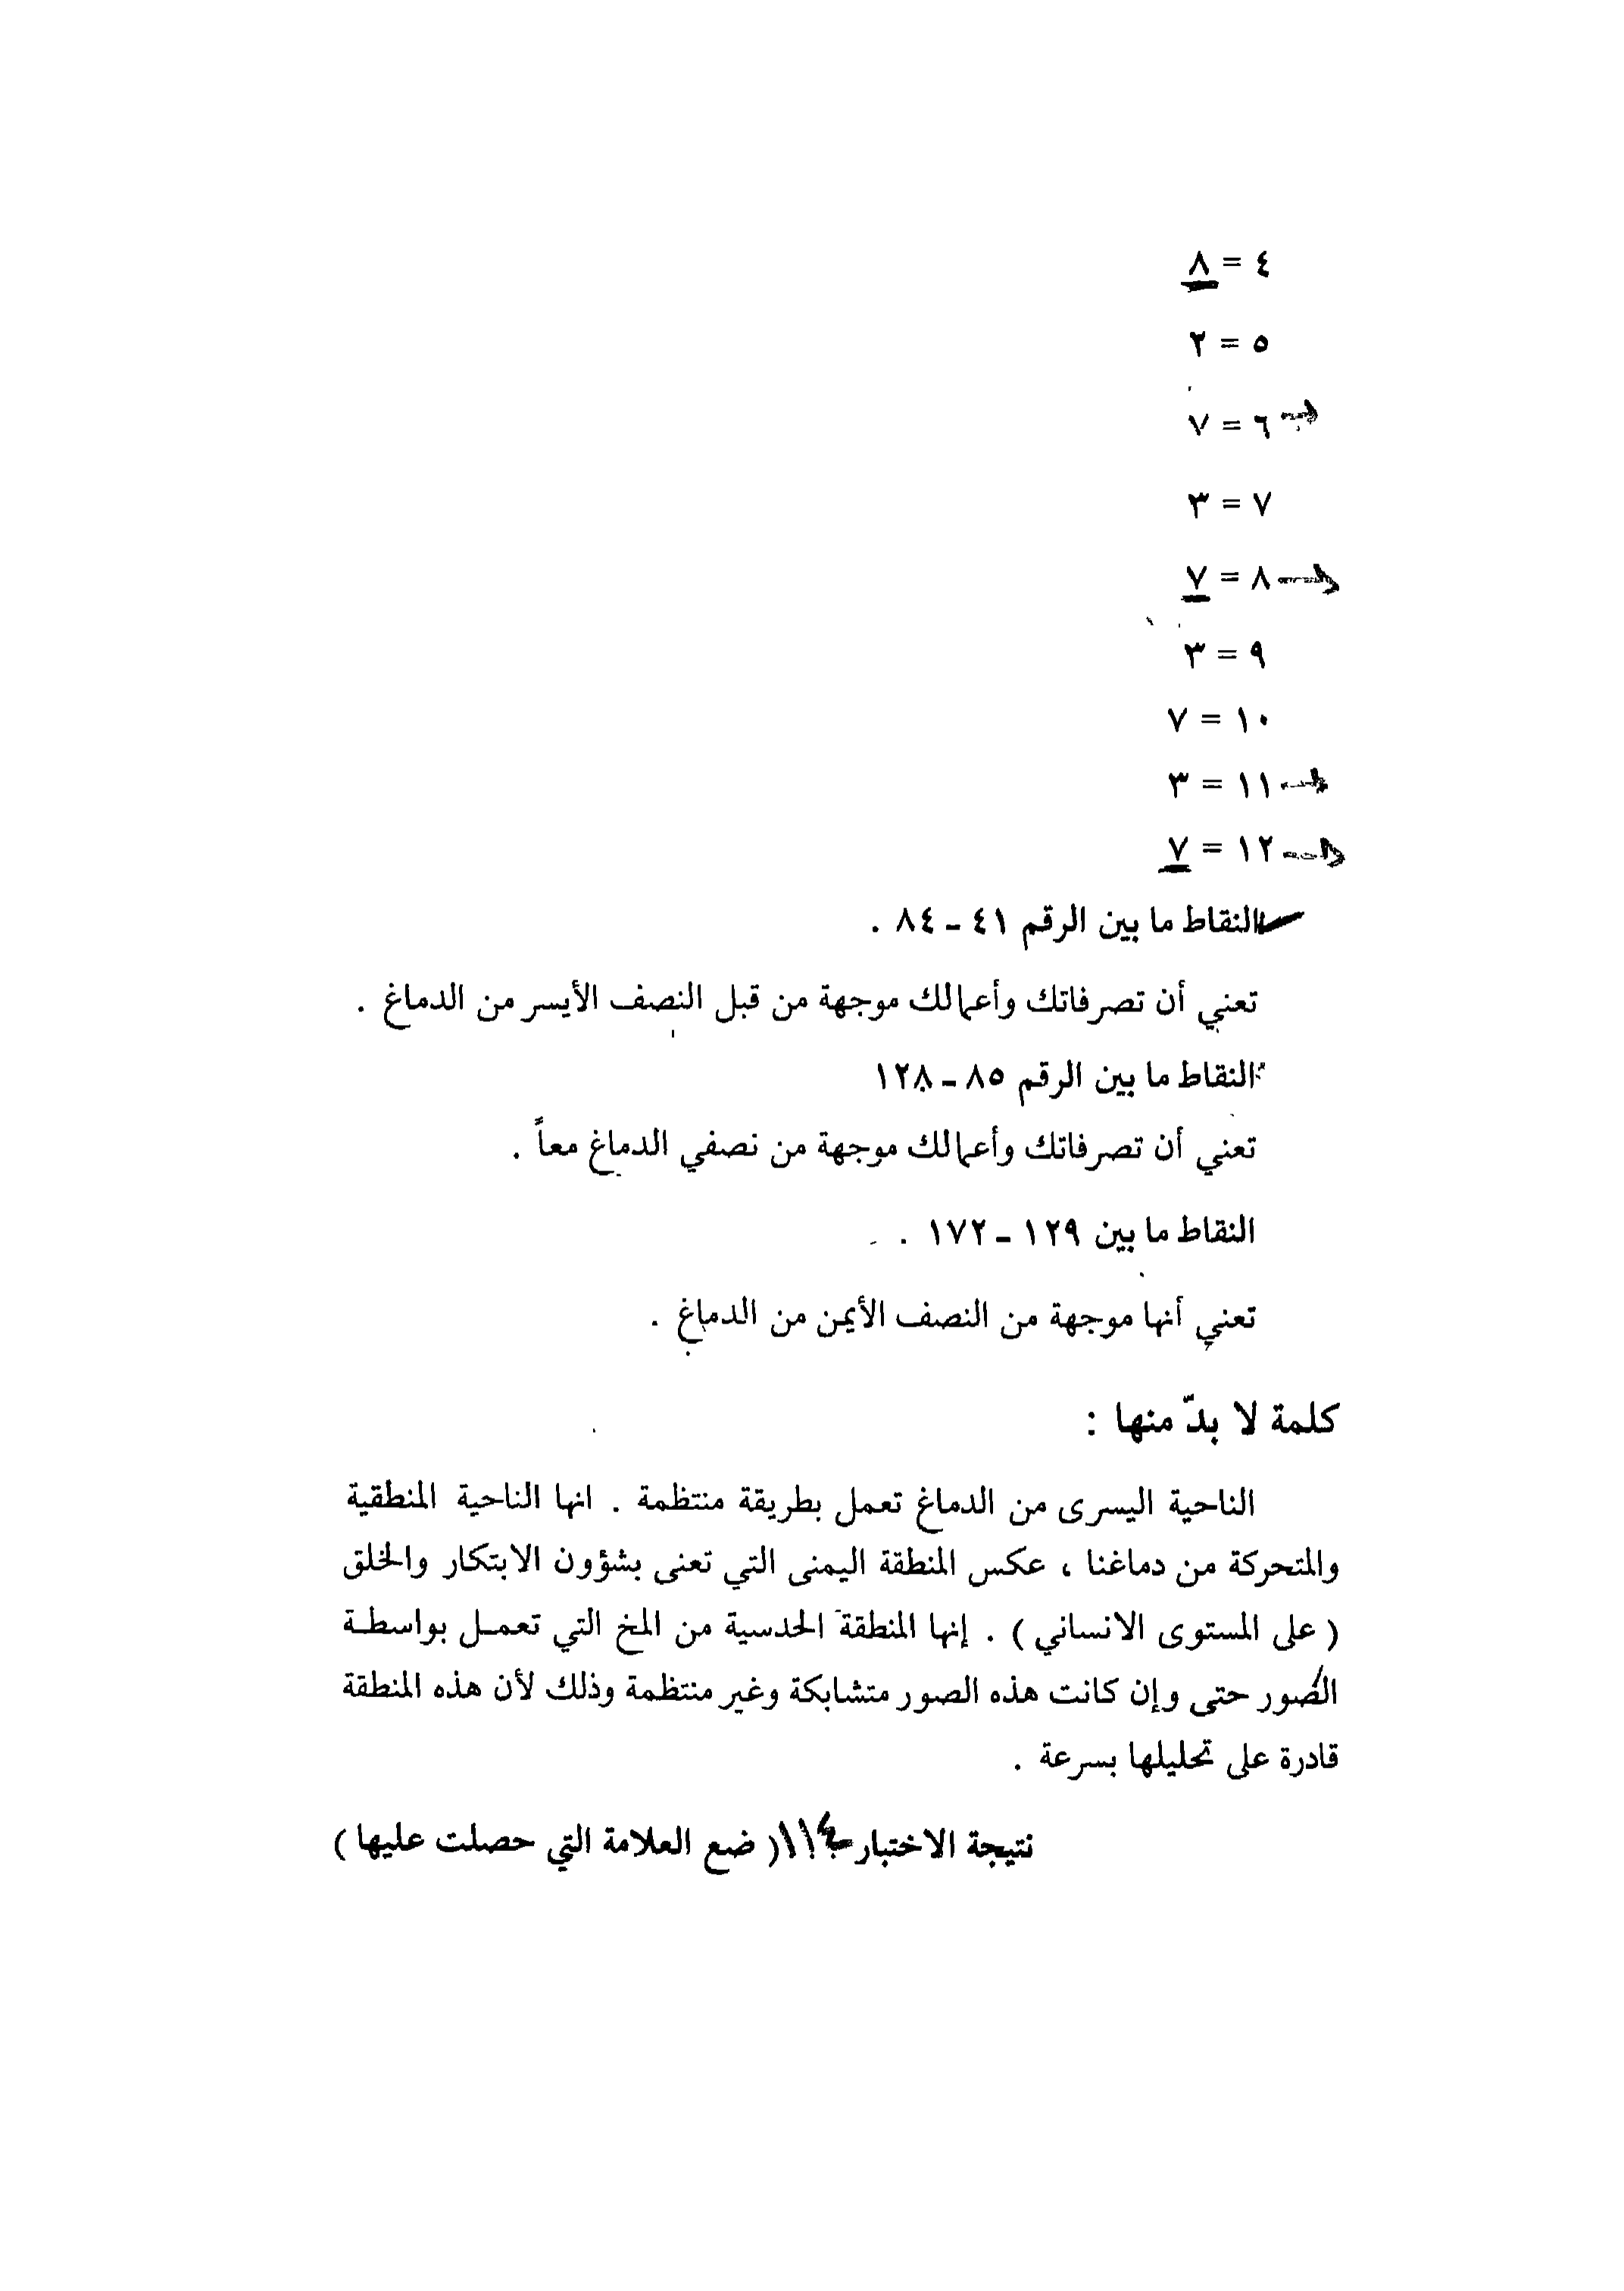 ٤ = ٨
٥ = ٢
٦ = ٧
٧ = ٣
٨ = ٧
٩ = ٣
١٠ = ٧
١١ = ٣
١٢ = ٧
النقاط ما بين الرقم ٤١ ـ ٨٤ .
تعني أن تصرفاتك وأعمالك موجهة من قبل النصف الأيسر من الدماغ .
النقاط ما بين الرقم ٨٥ ـ ١٢٨
تعني أن تصرفاتك وأعمالك موجهة من نصفي الدماغ معاً .
النقاط ما بين ١٢٩ ـ ١٧٢ .
تعني أنها موجهة من النصف الأيمن من الدماغ .
كلمة لا بدّ منها :
الناحية اليسرى من الدماغ تعمل بطريقة منتظمة . انها الناحية المنطقية
والمتحركة من دماغنا ، عكس المنطقة اليمنى التي تعنى بشؤون الابتكار والخلق
( على المستوى الانساني ) . إنها المنطقة الحدسية من المخ التي تعمل بواسطة
الصور حتى وإن كانت هذه الصور متشابكة وغير منتظمة وذلك لأن هذه المنطقة
قادرة على تحليلها بسرعة .
نتيجة الاختبار ١١٤ ( ضع العلامة التي حصلت عليها )